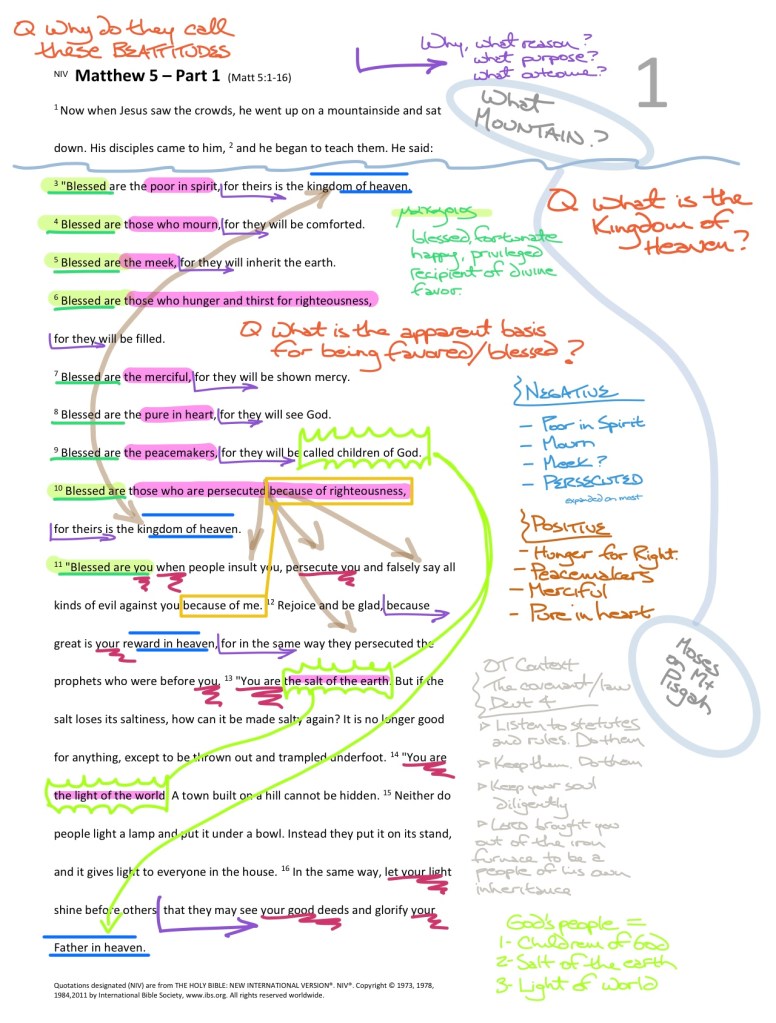 Q Why do they call
these BEATTITUDES
Why, what reason?
what purpose?
what outcome?
NIV Matthew 5 – Part 1 (Matt 5:1-16)
1
What
MOUNTAIN?
1 Now when Jesus saw the crowds, he went up on a mountainside and sat
down. His disciples came to him, 2 and he began to teach them. He said:
3 "Blessed are the poor in spirit, for theirs is the kingdom of heaven.
4 Blessed are those who mourn, for they will be comforted.
5 Blessed are the meek, for they will inherit the earth.
6 Blessed are those who hunger and thirst for righteousness,
for they will be filled.
Q What is the
Kingdom of
Heaven?
blessed, fortunate
happy, privileged
recipient of divine
favor.
Q What is the apparent basis
for being favored/blessed?
7 Blessed are the merciful, for they will be shown mercy.
8 Blessed are the pure in heart, for they will see God.
9 Blessed are the peacemakers, for they will be called children of God.
10 Blessed are those who are persecuted because of righteousness,
for theirs is the kingdom of heaven.
NEGATIVE
– Poor in Spirit
– Mourn
– Meek?
– PERSECUTED
expanded on most
POSITIVE
– Hunger for Right.
– Peacemakers
– Merciful
– Pure in heart
11 "Blessed are you when people insult you, persecute you and falsely say all
kinds of evil against you because of me. 12 Rejoice and be glad, because
great is your reward in heaven, for in the same way they persecuted the
prophets who were before you. 13 "You are the salt of the earth. But if the
salt loses its saltiness, how can it be made salty again? It is no longer good
for anything, except to be thrown out and trampled underfoot. 14 "You are
the light of the world. A town built on a hill cannot be hidden. 15 Neither do
people light a lamp and put it under a bowl. Instead they put it on its stand,
and it gives light to everyone in the house. 16 In the same way, let your light
shine before others, that they may see your good deeds and glorify your
Father in heaven.
Moses
on Mt
Pisgah
OT Context
The covenant/law
Deut 4
▷ Listen to statutes
and rules. Do them
▷ Keep them. Do them
▷ Keep your soul
diligently
▷ LORD brought you
out of the iron
furnace to be a
people of his own
inheritance
God's people =
1- Children of God
2- Salt of the earth
3- Light of world
Quotations designated (NIV) are from THE HOLY BIBLE: NEW INTERNATIONAL VERSION®. NIV®. Copyright © 1973, 1978,
1984,2011 by International Bible Society, www.ibs.org. All rights reserved worldwide.